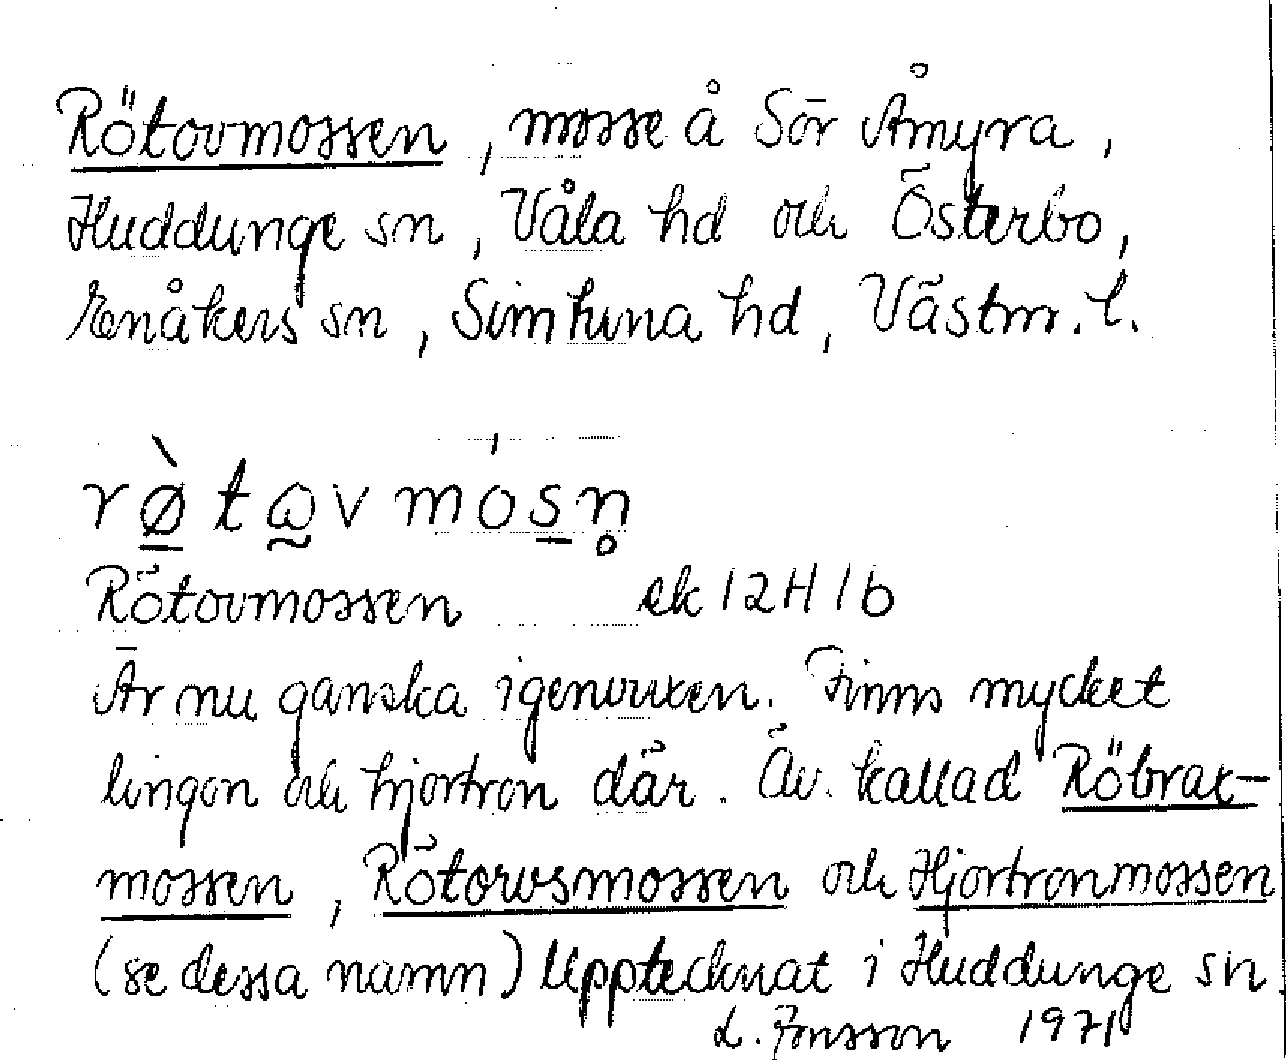 Rötovmossen, mosse å Sör Åmyra,
Huddunge sn, Våla hd och Österbo,
Enåkers sn, Simtuna hd, Västm. l.
rø̀tωvmósn̥
Rötovmossen ek 12H 1b
Är nu ganska igenvuxen. Finns mycket
lingon och hjortron där. Äv. kallad Röbrax-
mossen, Rötorvsmossen och Hjortronmossen
(se dessa namn) Upptecknat i Huddunge sn.
L. Jonsson 1971